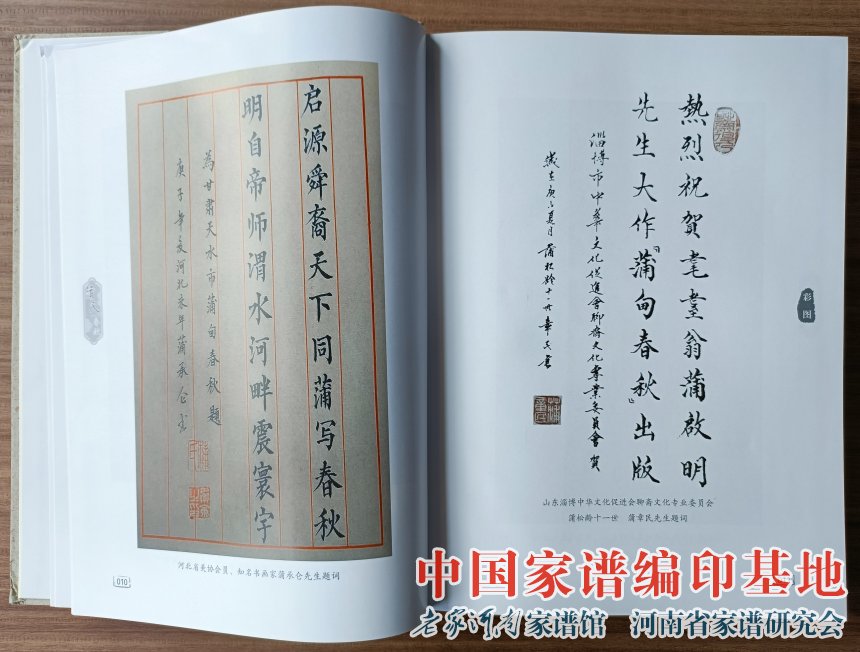 启源舜裔天下同蒲写春秋
明自帝师渭水河畔震寰宇
为甘肃天水市蒲甸春秋题
庚子年夏河北永年蒲承仑书
河北省美协会员、知名书画家蒲承仑先生题词
010
熱烈祝賀耄耋翁蒲啟明
先生大作『蒲甸春秋』出版
淄博市中華文化促進會聊斋文化專業委員會賀
歲在庚子夏月蒲松龄十一世章民書
山东淄博中华文化促进会聊斋文化专业委员会
蒲松龄十一世 蒲章民先生题词
彩图
中国家谱编印基地
老家河南家谱馆 河南省家谱研究会